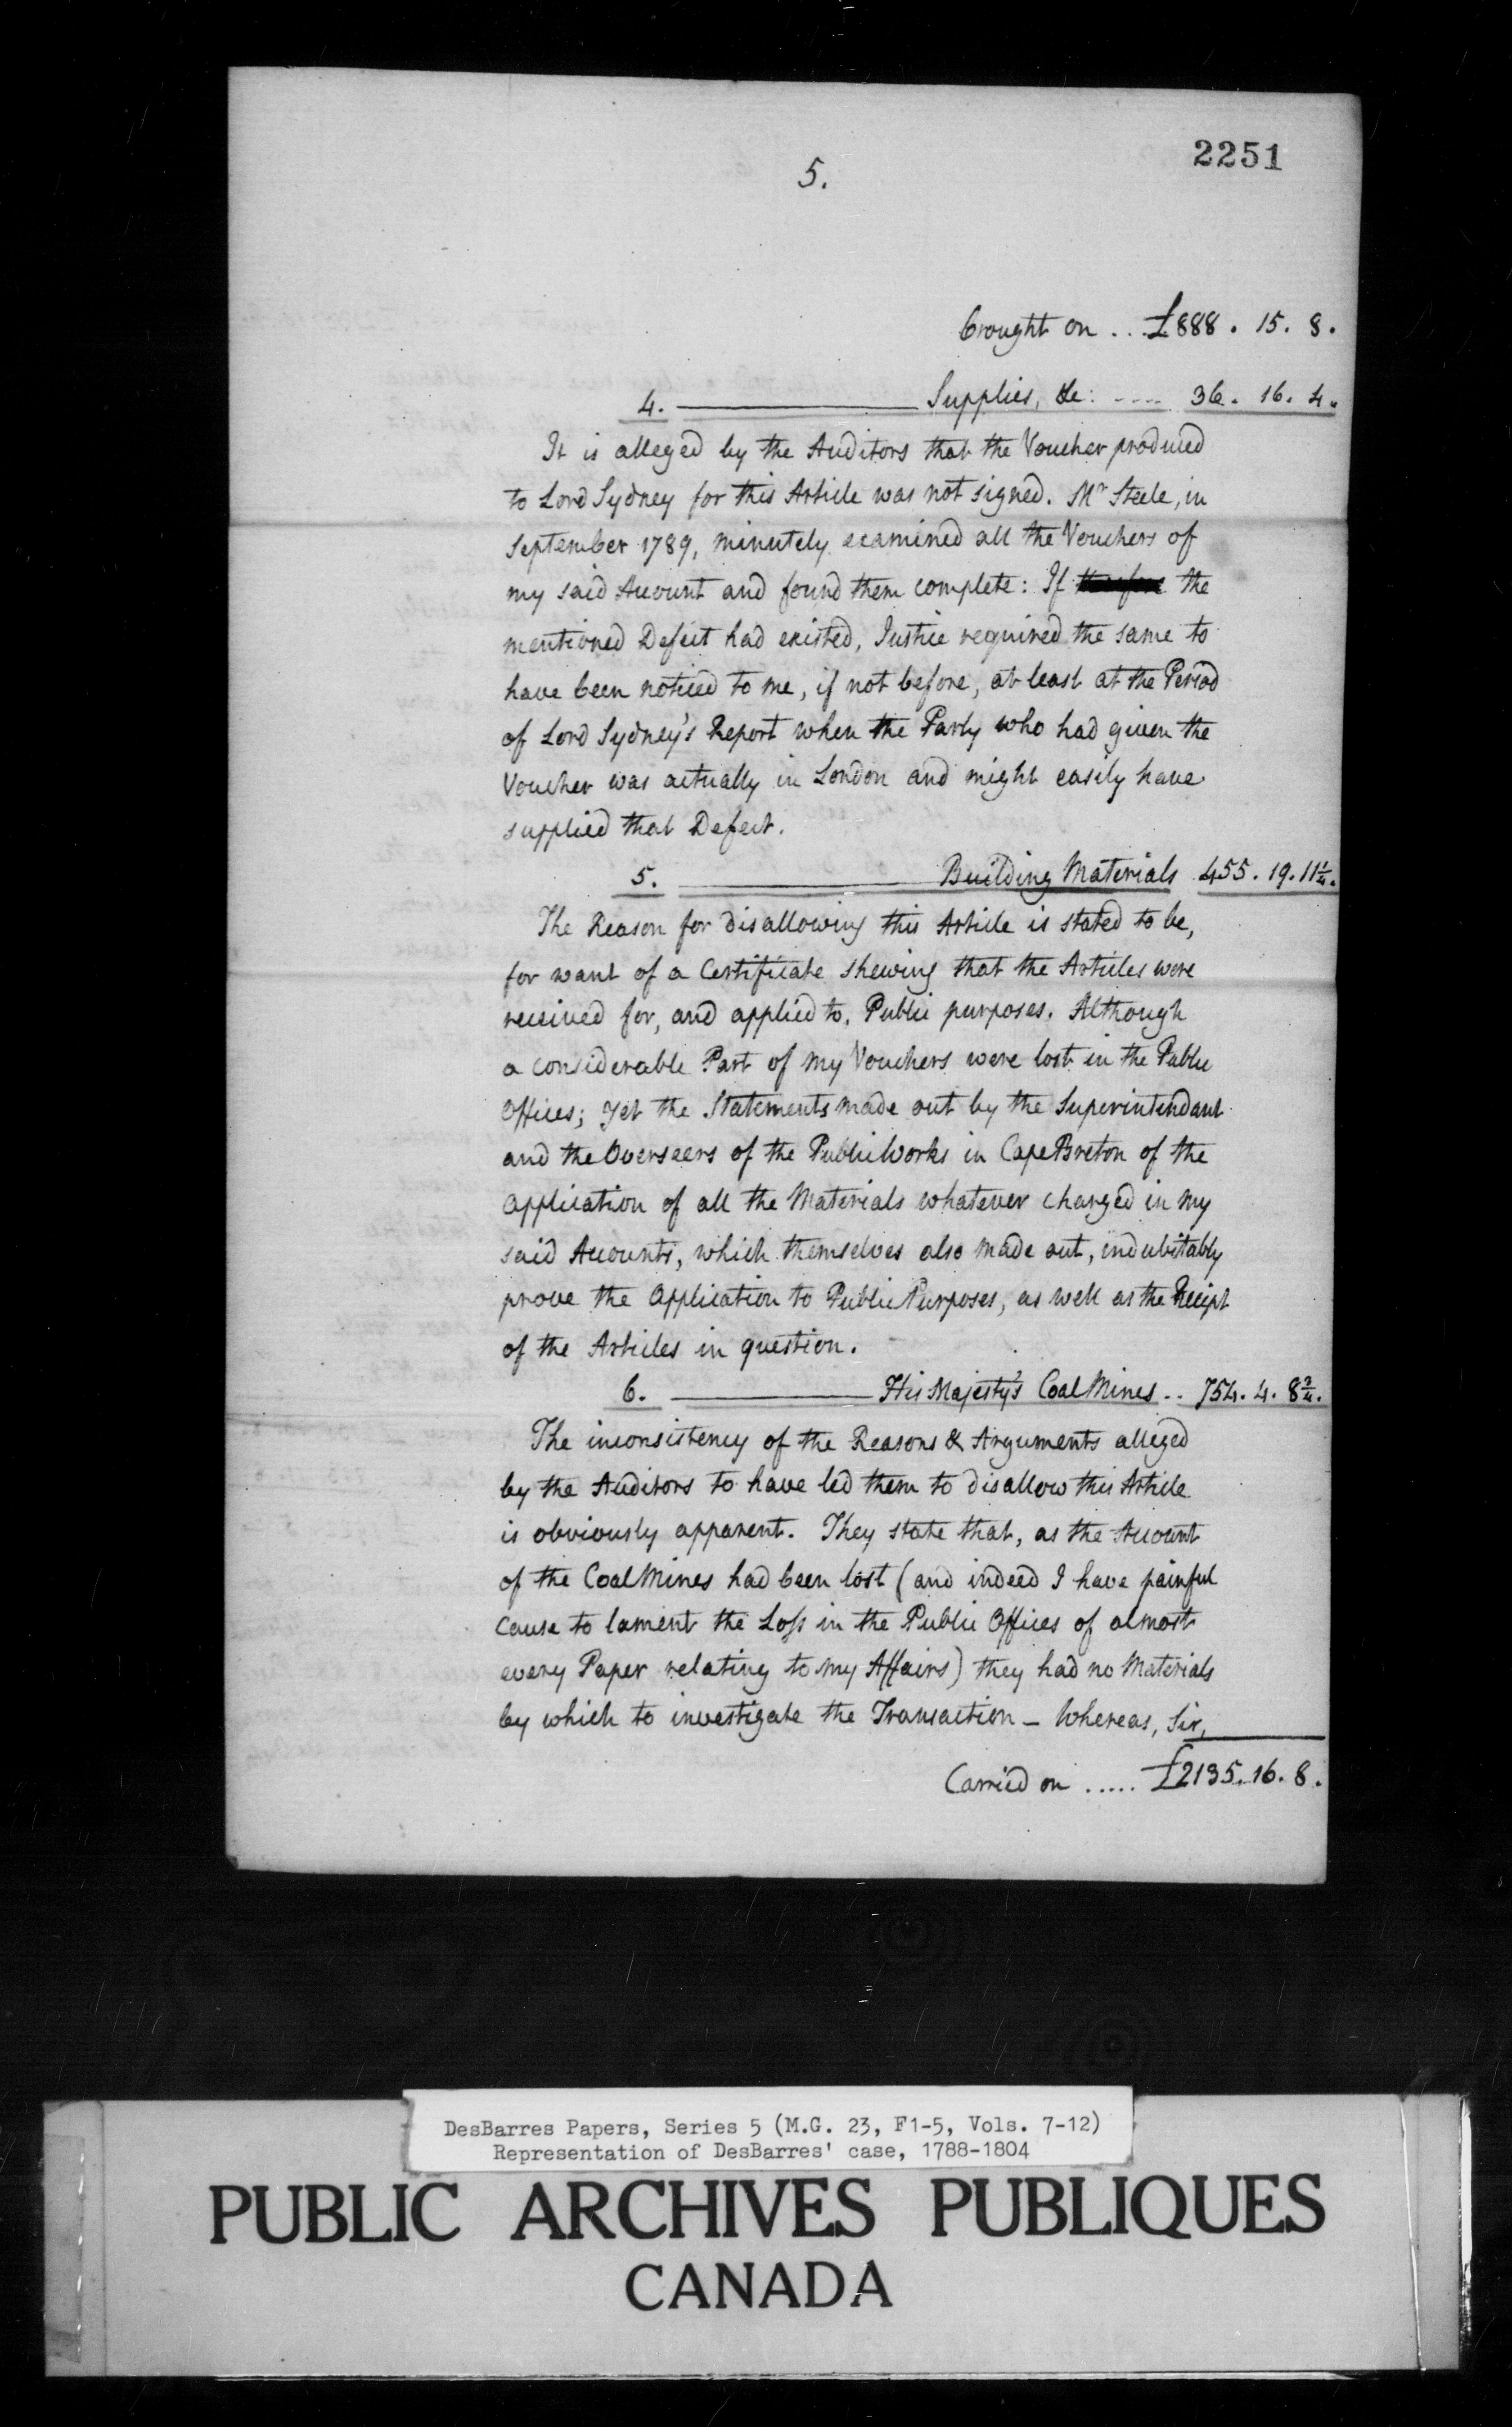 2251
5.
brought on ... £888. 15. 8.
4. Supplies, &c: ---- 36. 16. 4.
It is alleged by the Auditors that the Voucher produced
to Lord Sydney for this Article was not signed. Mr Steele, in
September 1789, minutely examined all the Vouchers of
my said Account and found them complete: If the
mentioned Defect had existed, Justice required the same to
have been noticed to me, if not before, at least at the Period
of Lord Sydney's Report when the Party who had given the
Voucher was actually in London and might easily have
supplied that Defect.
5. Building Materials 455. 19. 11¼.
The Reason for disallowing this Article is stated to be,
for want of a Certificate shewing that the Articles were
received for, and applied to, Public purposes. Although
a considerable Part of my Vouchers were lost in the Public
Offices; yet the Statements made out by the Superintendant
and the Overseers of the Public Works in Cape Breton of the
Application of all the Materials whatever charged in my
said Accounts, which themselves also made out, indubitably
prove the Application to Public Purposes, as well as the Receipt
of the Articles in question.
6. His Majesty's Coal Mines .. 754. 4. 8¾.
The inconsistency of the Reasons & Arguments alleged
by the Auditors to have led them to disallow this Article
is obviously apparent. They state that, as the Account
of the Coal Mines had been lost (and indeed I have painful
cause to lament the Loss in the Public Offices of almost
every Paper relating to my Affairs) they had no Materials
by which to investigate the Transaction - Whereas, Sir,
Carried on ..... £2135. 16. 8.
DesBarres Papers, Series 5 (M.G. 23, F1-5, Vols. 7-12)
Representation of DesBarres' case, 1788-1804
PUBLIC ARCHIVES PUBLIQUES
CANADA